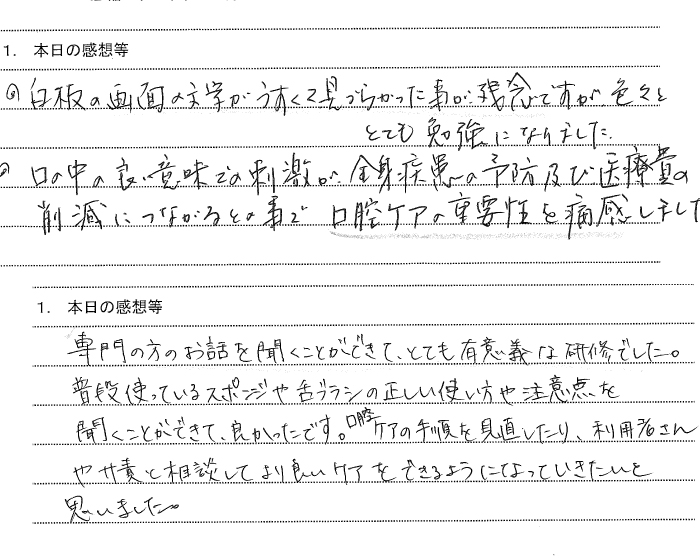 1. 本日の感想等
白板の画面の文字がうすくて見づらかった事が残念ですが色々と
とても勉強になりました。
口の中の良い意味での刺激が、全身疾患の予防及び医療費の
削減につながるとの事で 口腔ケアの重要性を痛感しました
1. 本日の感想等
専門の方のお話を聞くことができて、とても有意義な研修でした。
普段使っているスポンジや舌ブラシの正しい使い方や注意点を
聞くことができて、良かったです。口腔ケアの手順を見直したり、利用者さん
やサ責と相談してより良いケアをできるようになっていきたいと
思いました。